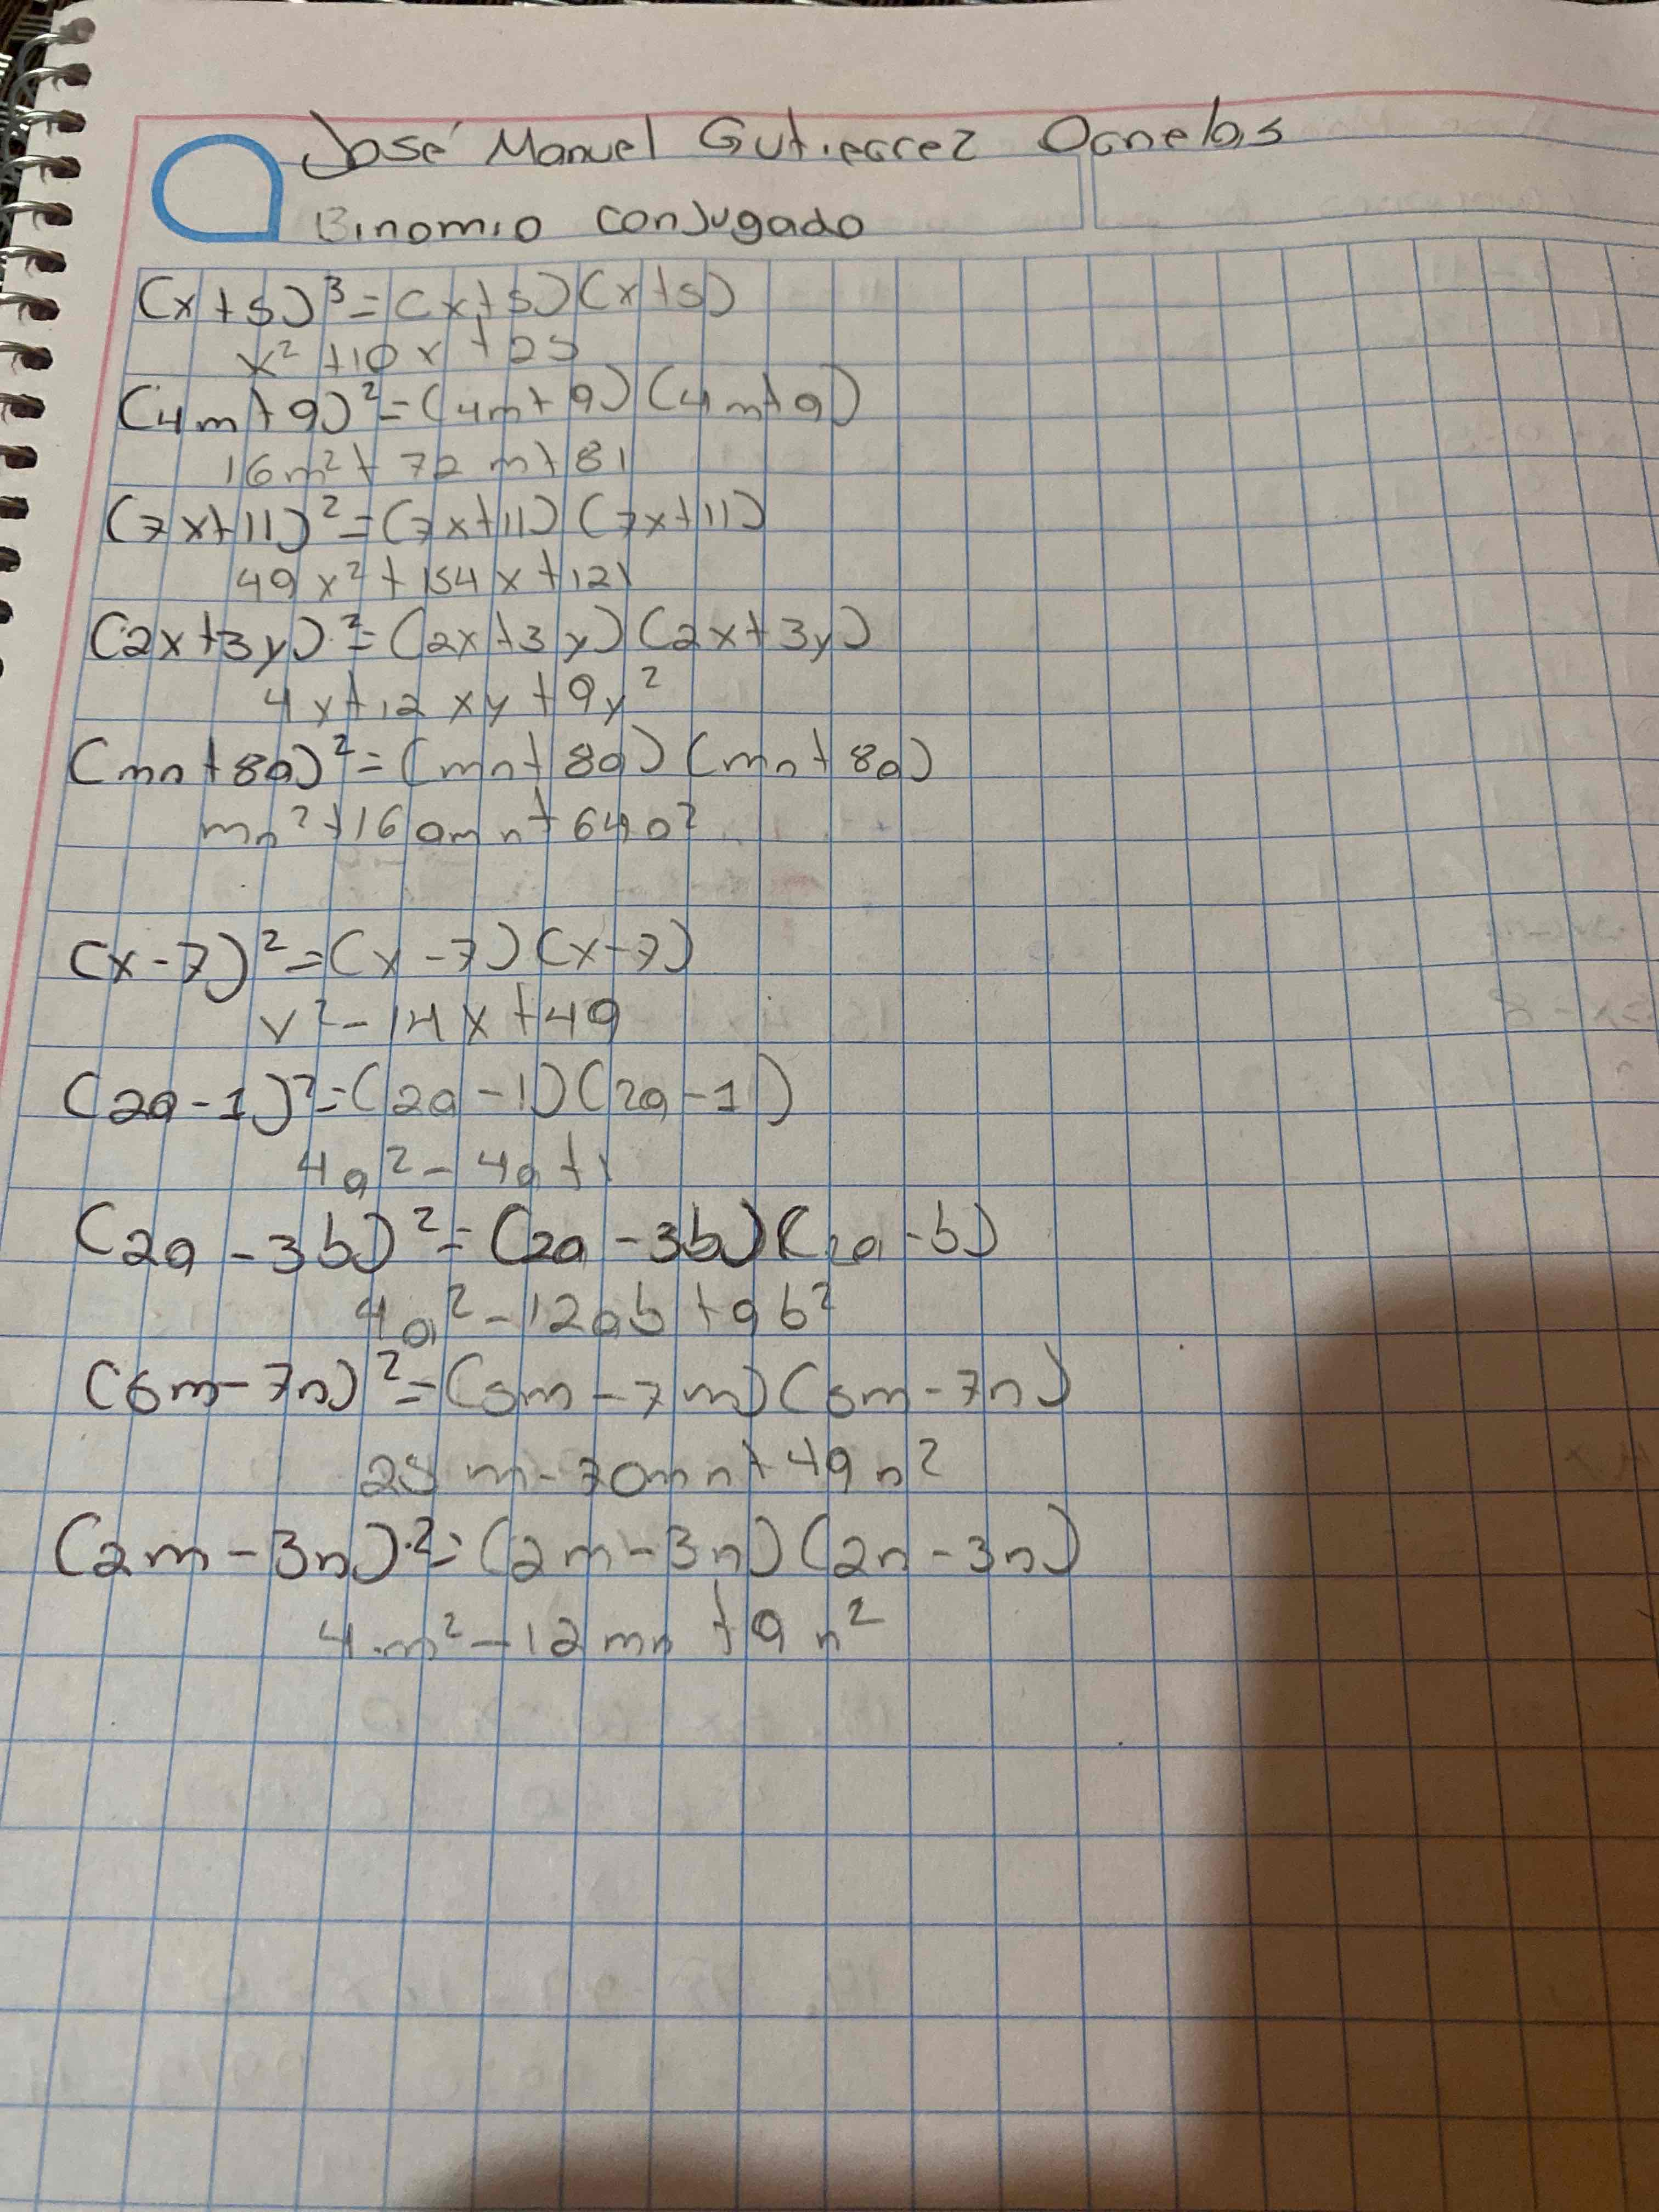 José Manuel Gutierrez Ornelas
Binomio conjugado
(x+5)³=(x+5)(x+5)
x²+10x+25
(4m+9)²=(4m+9)(4m+9)
16m²+72m+81
(7x+11)²=(7x+11)(7x+11)
49x²+154x+121
(2x+3y)²=(2x+3y)(2x+3y)
4x+12xy+9y²
(mn+8a)²=(mn+8a)(mn+8a)
mn²+16amn+64a²
(x-7)²=(x-7)(x-7)
x²-14x+49
(2a-1)²=(2a-1)(2a-1)
4a²-4a+1
(2a-3b)²=(2a-3b)(2a-b)
4a²-12ab+9b²
(5m-7n)²=(5m-7m)(5m-7n)
25m-70mn+49n²
(2m-3n)²=(2m-3n)(2n-3n)
4m²-12mn+9n²